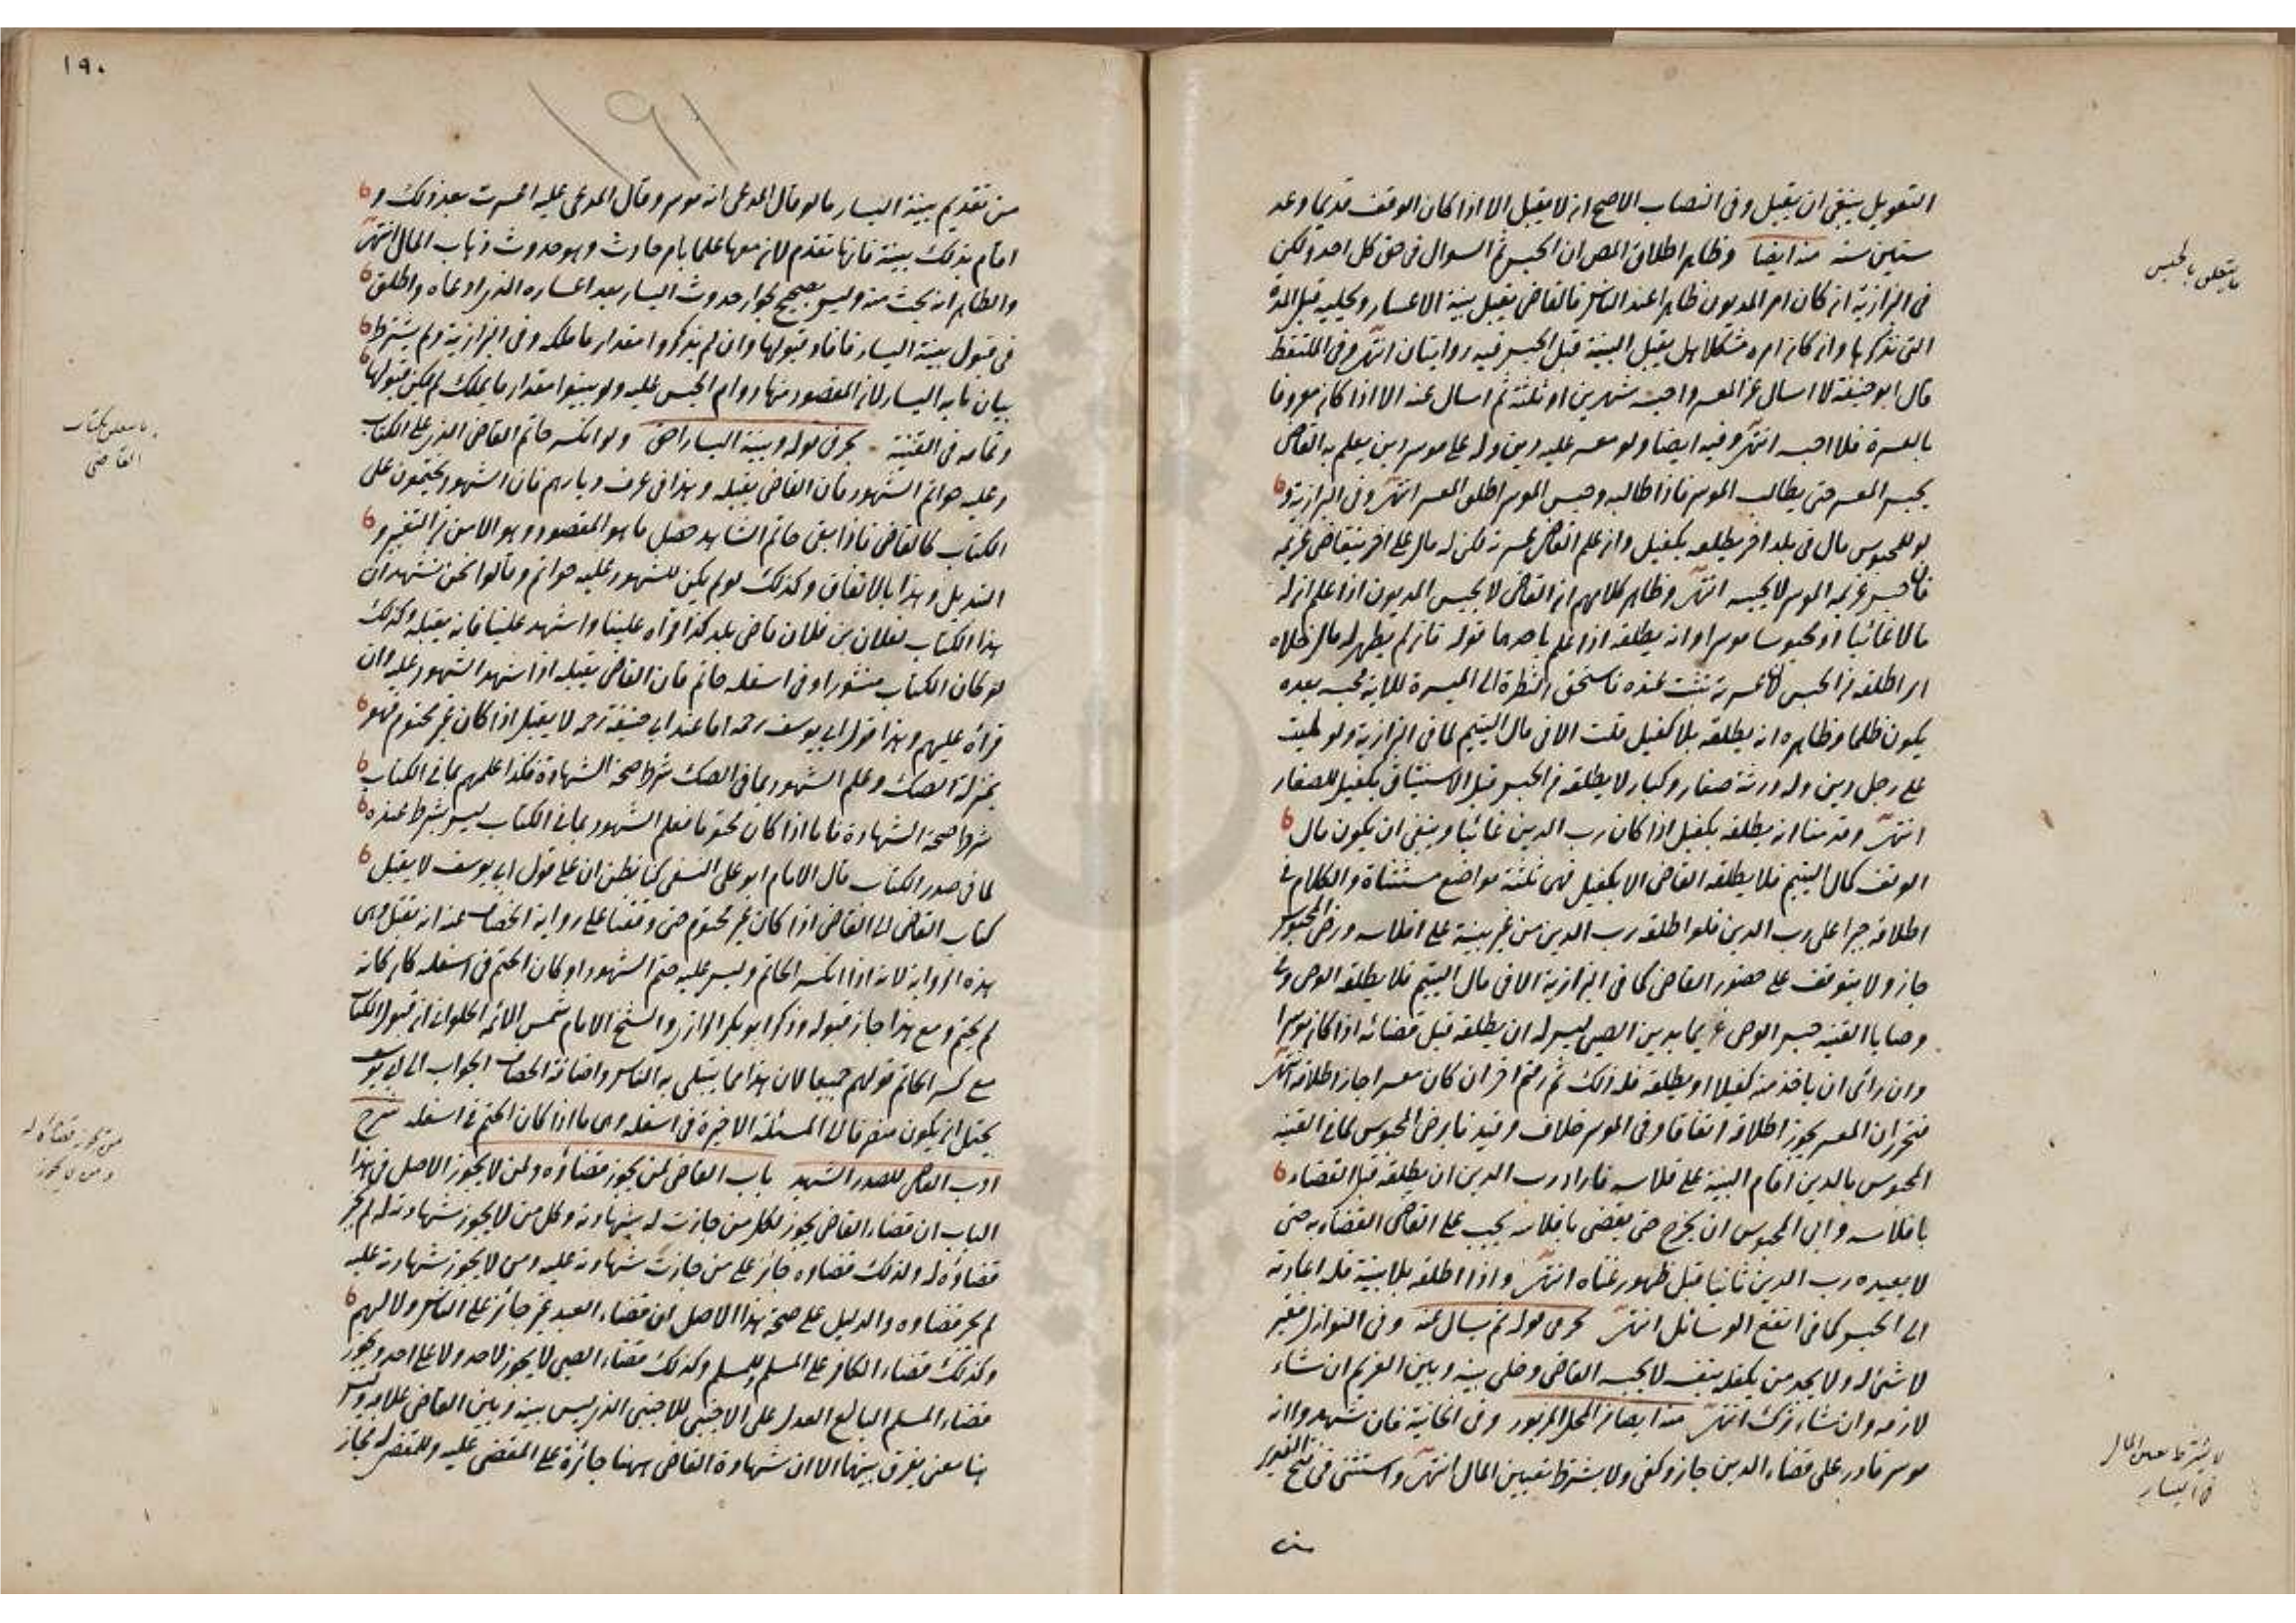 التعويل ينبغي ان يقبل وفي النصاب الاصح انه لا يقبل الا اذا كان الوقف قديما وعد
ستين سنة منه ايضا وظاهر اطلاق المص ان الحبس ثم السوال في حق كل احد ولكن
في البزازية ان كان امر المديون ظاهرا عند الناس فالقاضي يقبل بينة الاعسار ويخليه قبل المدة
التي نذكرها وان كان امره مشكلا هل يقبل البينة قبل الحبس فيه روايتان انتهى وفي الملتقط
قال ابو حنيفة لا اسال عن المعسر واحبسه شهرين او ثلثة ثم اسال عنه الا اذا كان معروفا
بالعسرة فلا احبسه انتهى وفيه ايضا ولو معسر عليه دين وله على موسر دين يعلم به القاضي
يحبس المعسر حتى يطالب الموسر فاذا طالبه وحبس الموسر اطلق المعسر انتهى وفي البزازية و
لو للمحبوس مال في بلد اخر يطلقه بكفيل وان علم القاضي عسرته لكن له مال على اخر يتقاضى غريمه
فان حبس غريمه الموسر لا يحبسه انتهى وظاهر كلامهم ان القاضي لا يحبس المديون اذا علم ان له
مالا غائبا او محبوسا موسرا وانه يطلقه اذا علم باحدهما قوله فان لم يظهر له مال خلاه
اي اطلقه من الحبس لان عسرته ثبتت عنده فاستحق النظرة الى الميسرة للاية فحبسه بعده
يكون ظلما وظاهره انه يطلقه بلا كفيل قلت الا في مال اليتيم لما في البزازية ولو لميت
على رجل دين وله ورثة صغار وكبار لا يطلقه من الحبس قبل الاستيثاق بكفيل للصغار
انتهى وقدمنا انه يطلقه بكفيل اذا كان رب الدين غائبا وينبغي ان يكون مال
الوقف كمال اليتيم فلا يطلقه القاضي الا بكفيل فهي ثلثة مواضع مستثناة والكلام في
اطلاقه جبرا على رب الدين فلو اطلقه رب الدين من غير بينة على افلاسه ورضي المحبوس
جاز ولا يتوقف على حضور القاضي كما في البزازية الا في مال اليتيم فلا يطلقه الوصي وفي
وصايا القنية حبس الوصي غريما بدين الصبي ليس له ان يطلقه قبل قضائه اذا كان موسرا
وان راى ان ياخذ منه كفيلا او يطلقه فله ذلك ثم رقم اخر ان كان معسرا جاز اطلاقه انتهى
فتحرر ان المعسر يجوز اطلاقه اتفاقا وفي الموسر خلاف وقيد نا برضى المحبوس لما في القنية
المحبوس بالدين اقام البينة على فلاسه فاراد رب الدين ان يطلقه قبل القضاء
بافلاسه وابى المحبوس ان يخرج حتى يقضي بافلاسه يجب على القاضي القضاء به حتى
لا يعيده رب الدين ثانيا قبل ظهور غناه انتهى واذا اطلقه بلا بينة فله اعادته
الى الحبس كما في انفع الوسائل انتهى بحر في قوله ثم يسال عنه وفي النوازل فقير
لا شئ له ولا يجد من يكفله بنفسه لا يحبسه القاضي وخلى بينه وبين الغريم ان شاء
لازمه وان شاء ترك انتهى منه ايضا من المحل المزبور وفي الخانية فان شهدوا انه
موسر قادر على قضاء الدين جاز وكفى ولا يشترط تعيين المال انتهى واستثنى في فتح القدير
من
ما يتعلق بالحبس
لا يشترط تعيين المال
في اليسار
١٩٠
١٩١
من تقديم بينة اليسار ما لو قال المدعي انه موسر وقال المدعى عليه اعسرت بعد ذلك و
اقام بذلك بينة فانها تقدم لان معها علما بامر حادث وهو حدوث ذهاب المال انتهى
والظاهر انه بحث منه وليس بصحيح لجواز حدوث اليسار بعد اعساره الذي ادعاه واطلق
في قبول بينة اليسار فافاد قبولها وان لم يذكروا مقدار ما ملكه وفي البزازية ولم يشترط
بيان ما به اليسار لان المقصود منها دوام الحبس عليه ولو بينوا مقدار ما يملك لم يمكن قبولها
وتمامه في القنية بحر في قوله وبينة اليسار احق ولو انكسر خاتم القاضي الذي على الكتاب
وعليه خواتم الشهود فان القاضي يقبله وهذا في عرف ديارهم فان الشهود يختمون على
الكتاب كالقاضي فاذا بقي خاتم الشاهد حصل ما هو المقصود وهو الامن من التغيير و
التبديل وهذا بالاتفاق وكذلك لو لم يكن للشهود عليه خواتم وقالوا نحن نشهد ان
هذا الكتاب لفلان بن فلان قاضي بلد كذا قراه علينا واشهد علينا فانه يقبله وكذلك
لو كان الكتاب منشورا وفي اسفله خاتم فان القاضي يقبله اذا شهد الشهود عليه وان
قراه عليهم وهذا قول ابي يوسف رحمه اما عند ابي حنيفة رحمه لا يقبل اذا كان غير مختوم فهو
بمنزلة الصك وعلم الشهود بما في الصك شرط صحة الشهادة فكذا علمهم بما في الكتاب
شرط صحة الشهادة فاما اذا كان مختوما فعلم الشهود بما في الكتاب ليس بشرط عنده
لما في صدر الكتاب قال الامام ابو علي النسفي كنا نظن ان على قول ابي يوسف لا يقبل
كتاب القاضي الى القاضي اذا كان غير مختوم حتى وقفنا على رواية الخصاف عنه انه يقبل وهي
هذه الرواية لانه اذا انكسر الخاتم وليس عليه ختم الشهود او كان الختم في اسفله كان كانه
لم يختم ومع هذا جاز قبوله وذكر ابو بكر الرازي والشيخ الامام شمس الائمة الحلواني ان قبول الكتاب
مع كسر الخاتم قولهم جميعا لان هذا مما يبتلى به الناس واضافة الخصاف الجواب الى ابي يوسف
يحتمل ان يكون منصرفا الى المسئلة الاخيرة في اسفله وهي ما اذا كان الختم في اسفله شرح
ادب القاضي للصدر الشهيد باب القاضي لمن يجوز قضاؤه ولمن لا يجوز الاصل في هذا
الباب ان قضاء القاضي يجوز لكل من جازت له شهادته وكل من لا يجوز شهادته له لم يجز
قضاؤه له ولذلك قضاوه جائز على من جازت شهادته عليه ومن لا يجوز شهادته عليه
لم يجز قضاوه والدليل على صحة هذا الاصل ان قضاء العبد غير جائز على الناس ولا لهم
وكذلك قضاء الكافر على المسلم وللمسلم وكذلك قضاء الصبي لا يجوز لاحد ولا على احد ويجوز
قضاء المسلم البالغ العدل على الاجنبي للاجنبي الذي ليس بينه وبين القاضي علامة وليس
هنا معنى يفرق بينهما الا ان شهادة القاضي ههنا جائزة على المقضي عليه وللمقضي له فجاز
ما يتعلق بكتاب
القاضي
من يجوز قضاؤه له
ومن لا يجوز